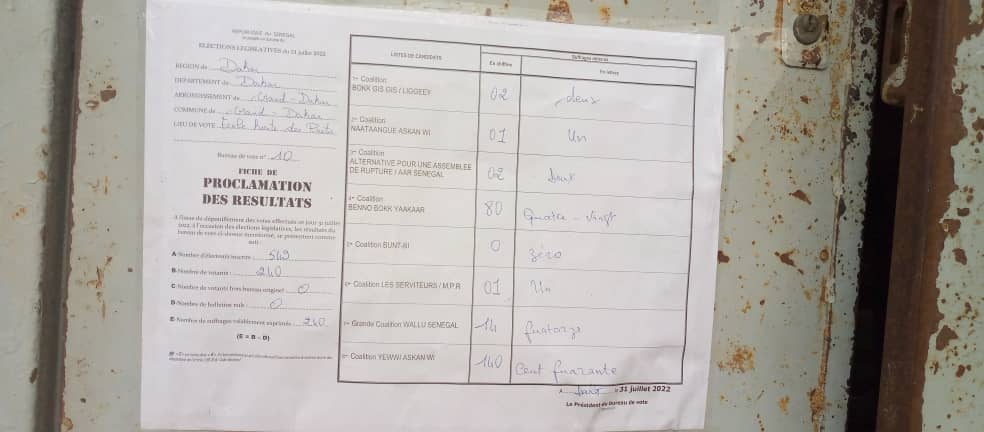 REPUBLIQUE du SENEGAL
ELECTIONS LEGISLATIVES du 31 juillet 2022
REGION de Dakar
DEPARTEMENT de Dakar
ARRONDISSEMENT de Grand-Dakar
COMMUNE de Grand-Dakar
LIEU DE VOTE Ecole
Bureau de vote n° 10
FICHE DE
PROCLAMATION
DES RESULTATS
A l'issue du dépouillement des votes effectués ce jour 31 juillet
2022, à l'occasion des élections législatives, les résultats du
bureau de vote ci-dessus mentionné, se présentent comme
suit :
A-Nombre d'électeurs inscrits : 549
B-Nombre de votants : 240
C-Nombre de votants hors bureau originel : 0
D-Nombre de bulletins nuls : 0
E-Nombre de suffrages valablement exprimés : 240
(E = B – D)
LISTES DE CANDIDATS
Suffrages obtenus
En chiffre
En lettres
1ère Coalition
BOKK GIS GIS / LIGGEEY
02
deux
2ème Coalition
NAATAANGUE ASKAN WI
01
Un
3ème Coalition
ALTERNATIVE POUR UNE ASSEMBLEE
DE RUPTURE / AAR SENEGAL
02
deux
4ème Coalition
BENNO BOKK YAAKAAR
80
Quatre-vingt
5ème Coalition BUNT-BI
0
zéro
6ème Coalition LES SERVITEURS / M.P.R
01
Un
7ème Grande Coalition WALLU SENEGAL
14
quatorze
8ème Coalition YEWWI ASKAN WI
140
Cent quarante
le 31 juillet 2022
Le Président du bureau de vote